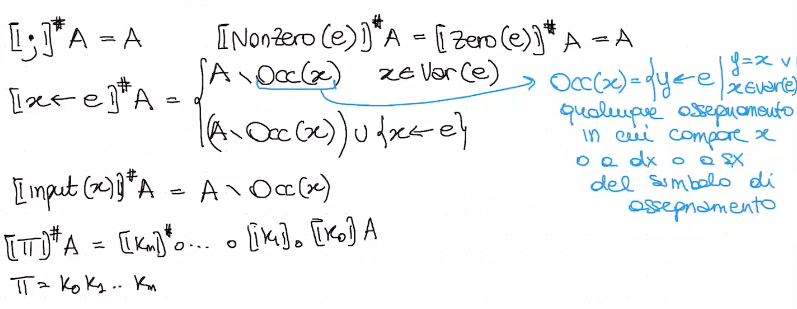 ⟦;⟧# A = A ⟦Nonzero(e)⟧# A = ⟦Zero(e)⟧# A = A
⟦x ← e⟧# A = { A \ Occ(x) x ∈ Var(e)
(A \ Occ(x)) ∪ {x ← e}
Occ(x) = {y ← e | y = x ∨
x ∈ Var(e)
qualunque assegnamento
in cui compare x
o a dx o a sx
del simbolo di
assegnamento
⟦input(x)⟧# A = A \ Occ(x)
⟦π⟧# A = ⟦km⟧# ∘ ... ∘ ⟦k1⟧ ∘ ⟦k0⟧ A
π = k0 k1 .. km